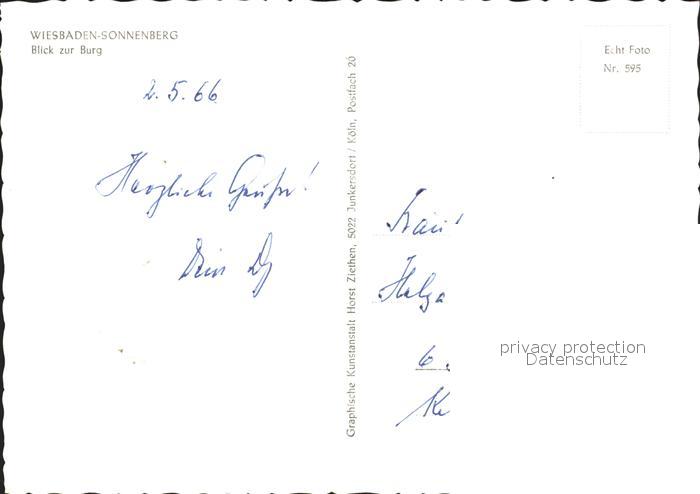 WIESBADEN-SONNENBERG
Blick zur Burg
2.5.66
Herzliche Grüße!
Dein
Graphische Kunstanstalt Horst Ziethen, 5022 Junkersdorf / Köln, Postfach 20
Echt Foto
Nr. 595
Helga
6.
privacy protection
Datenschutz